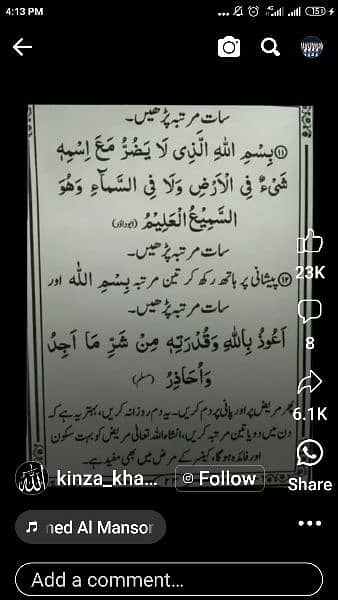 4:13 PM
4G
15
سات مرتبہ پڑھیں۔
⑪ بِسْمِ اللهِ الَّذِی لَا یَضُرُّ مَعَ اسْمِهٖ
شَیْءٌ فِی الْاَرْضِ وَلَا فِی السَّمَآءِ وَهُوَ
السَّمِیْعُ الْعَلِیْمُ (ابوداؤد)
سات مرتبہ پڑھیں۔
⑫ پیشانی پر ہاتھ رکھ کر تین مرتبہ بِسْمِ اللهِ اور
سات مرتبہ پڑھیں۔
اَعُوْذُ بِاللهِ وَقُدْرَتِهٖ مِنْ شَرِّ مَا اَجِدُ
وَاُحَاذِرُ (مسلم)
پھر مریض پر اور پانی پر دم کریں۔ یہ دم روزانہ کریں، بہتر یہ ہے کہ
دن میں دو یا تین مرتبہ کریں، انشاءاللہ تعالیٰ مریض کو بہت سکون
اور فائدہ ہوگا، کینسر کے مرض میں بھی مفید ہے۔
23K
8
6.1K
Share
kinza_kha...
Follow
ned Al Mansor
Add a comment...